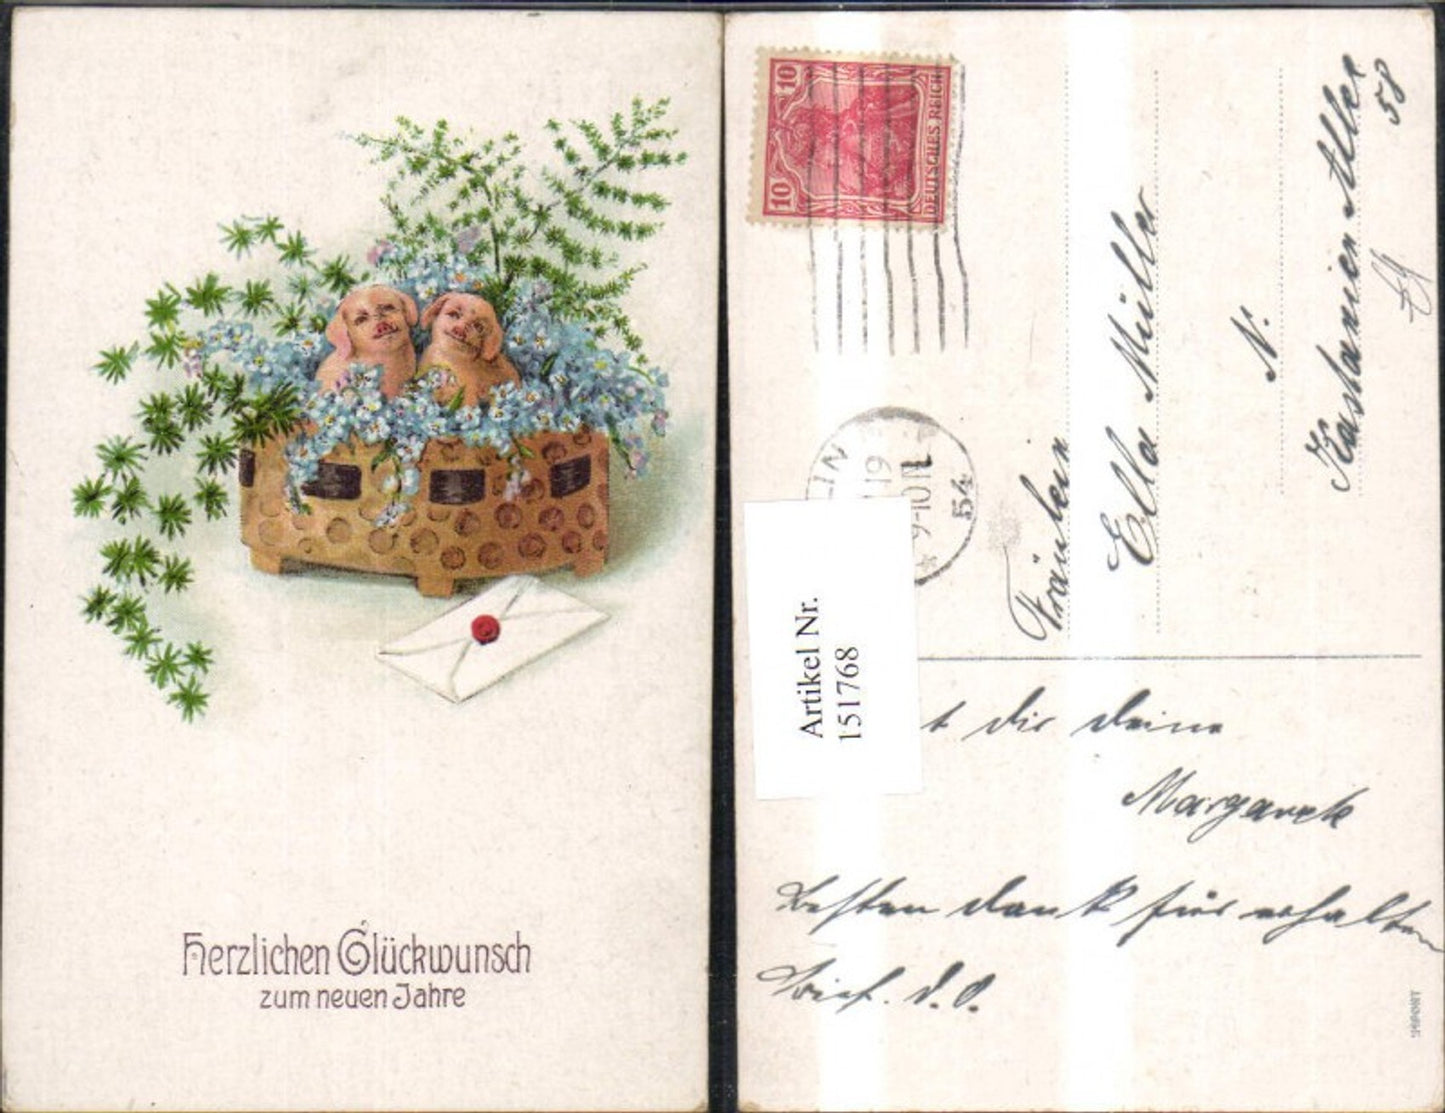 Herzlichen Glückwunsch
zum neuen Jahre
10 10
DEUTSCHES REICH
LIN
19
9-10
54
*
Artikel Nr.
151768
Fräulein
Ella Müller
N.
Kastanien Allee
58
t dir deine
Margarete
Besten dank für erhalten
Brief. d. O.
IMPORT